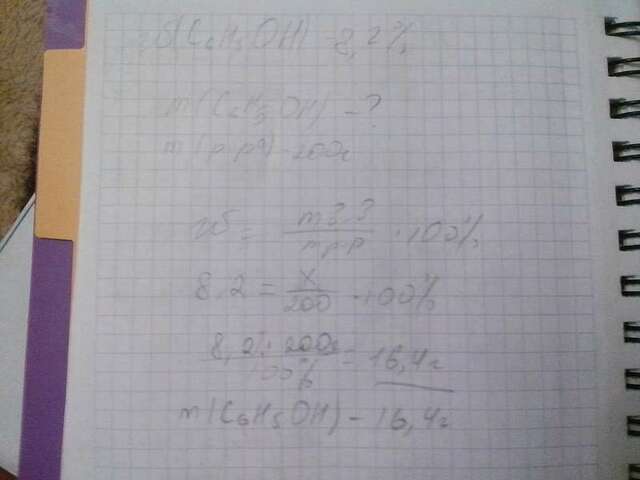 ω(C6H5OH) - 8,2%
m(C6H5OH) - ?
m(р-ра) - 200г
ω = m в.в / m р-р · 100%
8,2 = x / 200 · 100%
8,2% · 200г / 100% = 16,4г
m(C6H5OH) - 16,4г